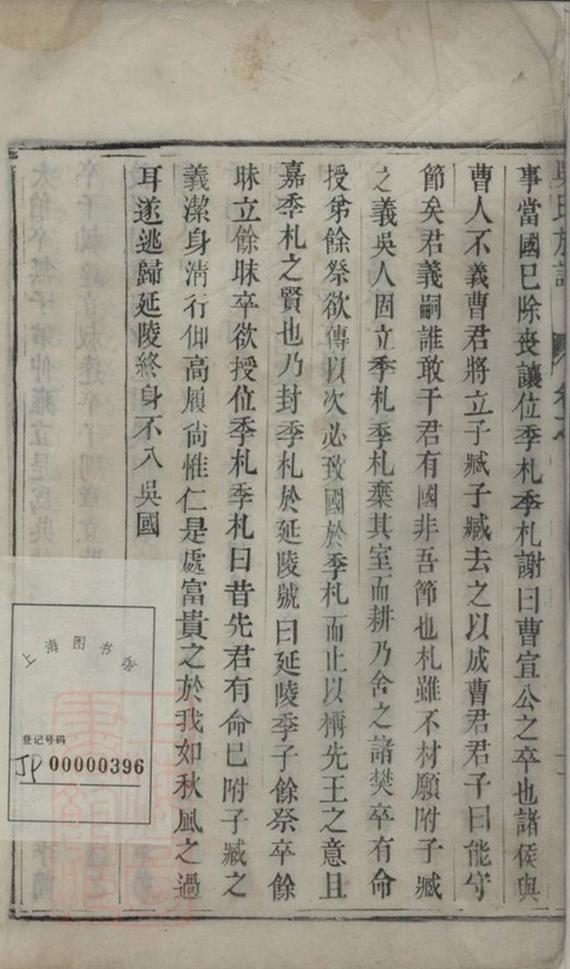 吳氏族譜
事當國已除喪讓位季札季札謝曰曹宣公之卒也諸侯與
曹人不義曹君將立子臧子臧去之以成曹君君子曰能守
節矣君義嗣誰敢干君有國非吾節也札雖不材願附子臧
之義吳人固立季札季札棄其室而耕乃舍之諸樊卒有命
授弟餘祭欲傳以次必致國於季札而止以稱先王之意且
嘉季札之賢也乃封季札於延陵號曰延陵季子餘祭卒餘
昧立餘昧卒欲授位季札季札曰昔先君有命已附子臧之
義潔身清行仰高履尚惟仁是處富貴之於我如秋風之過
耳遂逃歸延陵終身不入吳國
上海图书馆
登记号码
JP 00000396